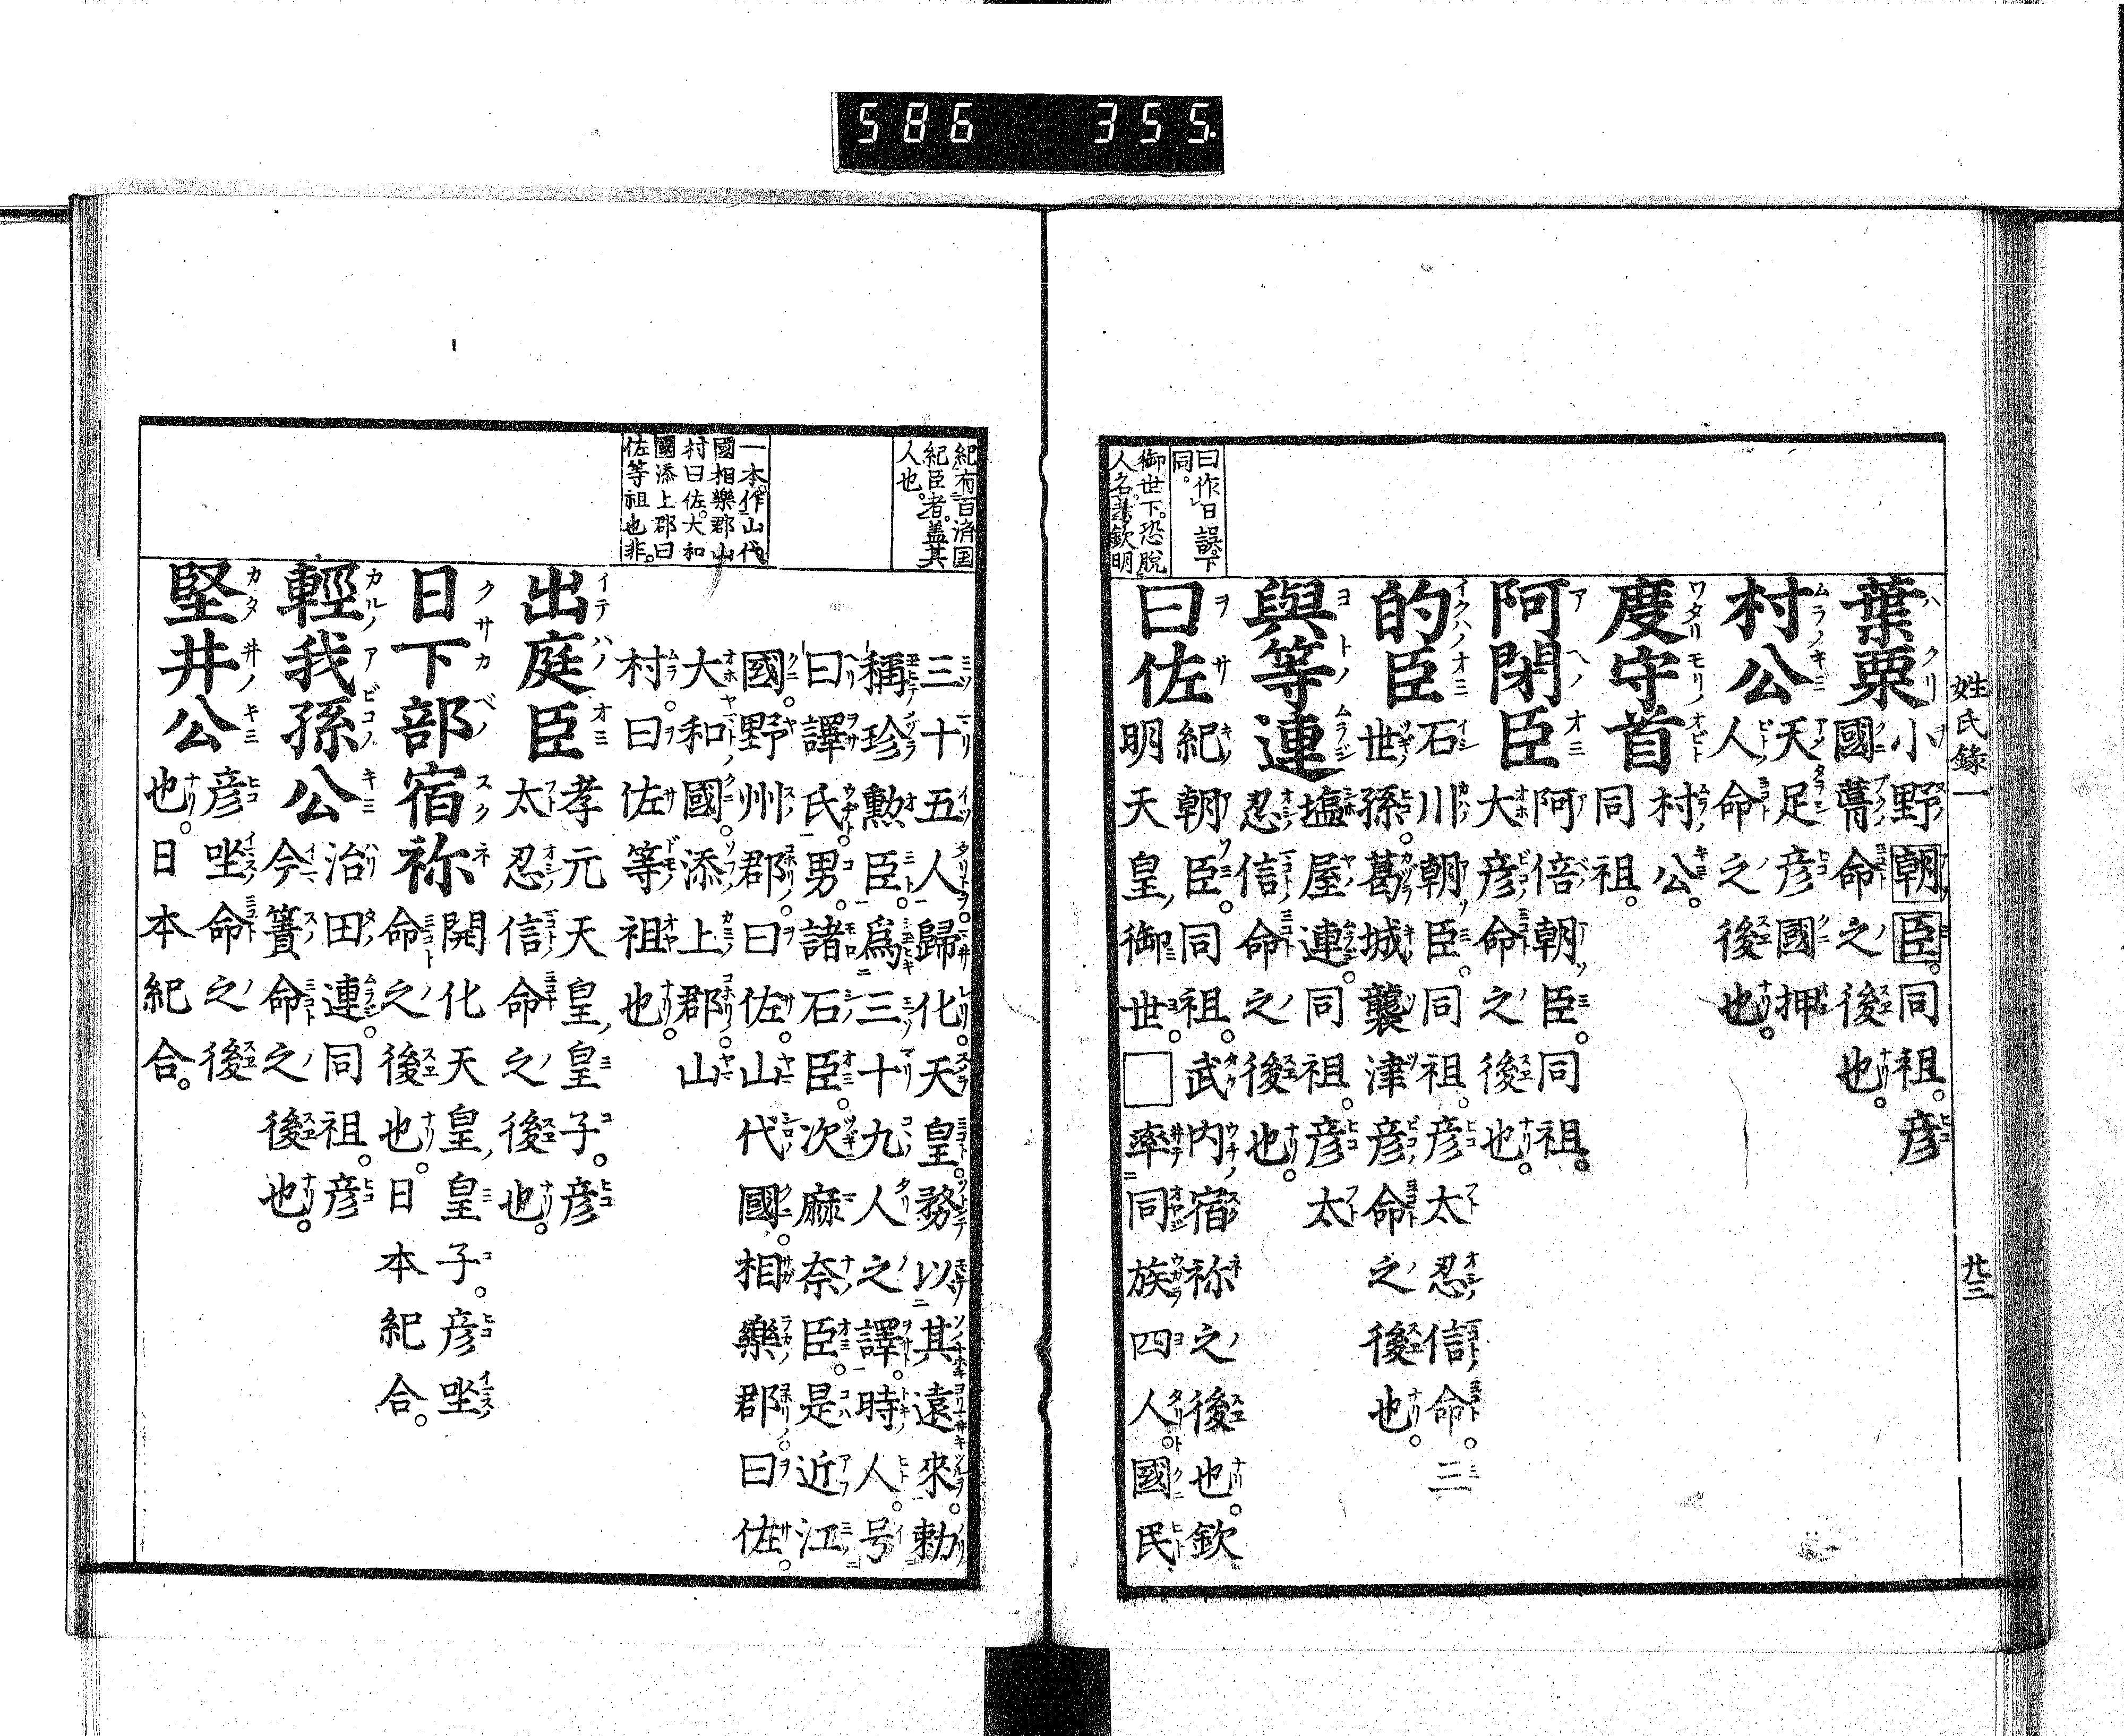 586 355
姓氏錄一
廿三
曰作日誤下
同。
御世下。恐脫
人名。欽明
葉栗
小野朝臣。同祖。彥
國葺命之後也。
村公
天足彥國押
人命之後也。
度守首
村公。
同祖。
阿閉臣
阿倍朝臣。同祖。
大彥命之後也。
的臣
石川朝臣。同祖。彥太忍信命。三
世孫。葛城襲津彥命之後也。
與等連
塩屋連。同祖。彥太
忍信命之後也。
曰佐
紀朝臣。同祖。武內宿祢之後也。欽
明天皇御世。□率同族四人。國民
紀有百済国
紀臣者。盖其
人也。
一本。作山代
國相樂郡山
村曰佐。大和
國添上郡曰
佐等祖也非。
三十五人歸化。天皇。務以其遠來。勅
稱珍勳臣。爲三十九人之譯。時人。号
曰譯氏。男。諸石臣。次麻奈臣。是近江
國。野州郡。曰佐。山代國。相樂郡。曰佐。
大和國。添上郡。山
村。曰佐等祖也。
出庭臣
孝元天皇皇子。彥
太忍信命之後也。
日下部宿祢
開化天皇皇子。彥坐
命之後也。日本紀合。
輕我孫公
治田連。同祖。彥
今簀命之後也。
堅井公
彥坐命之後
也。日本紀合。